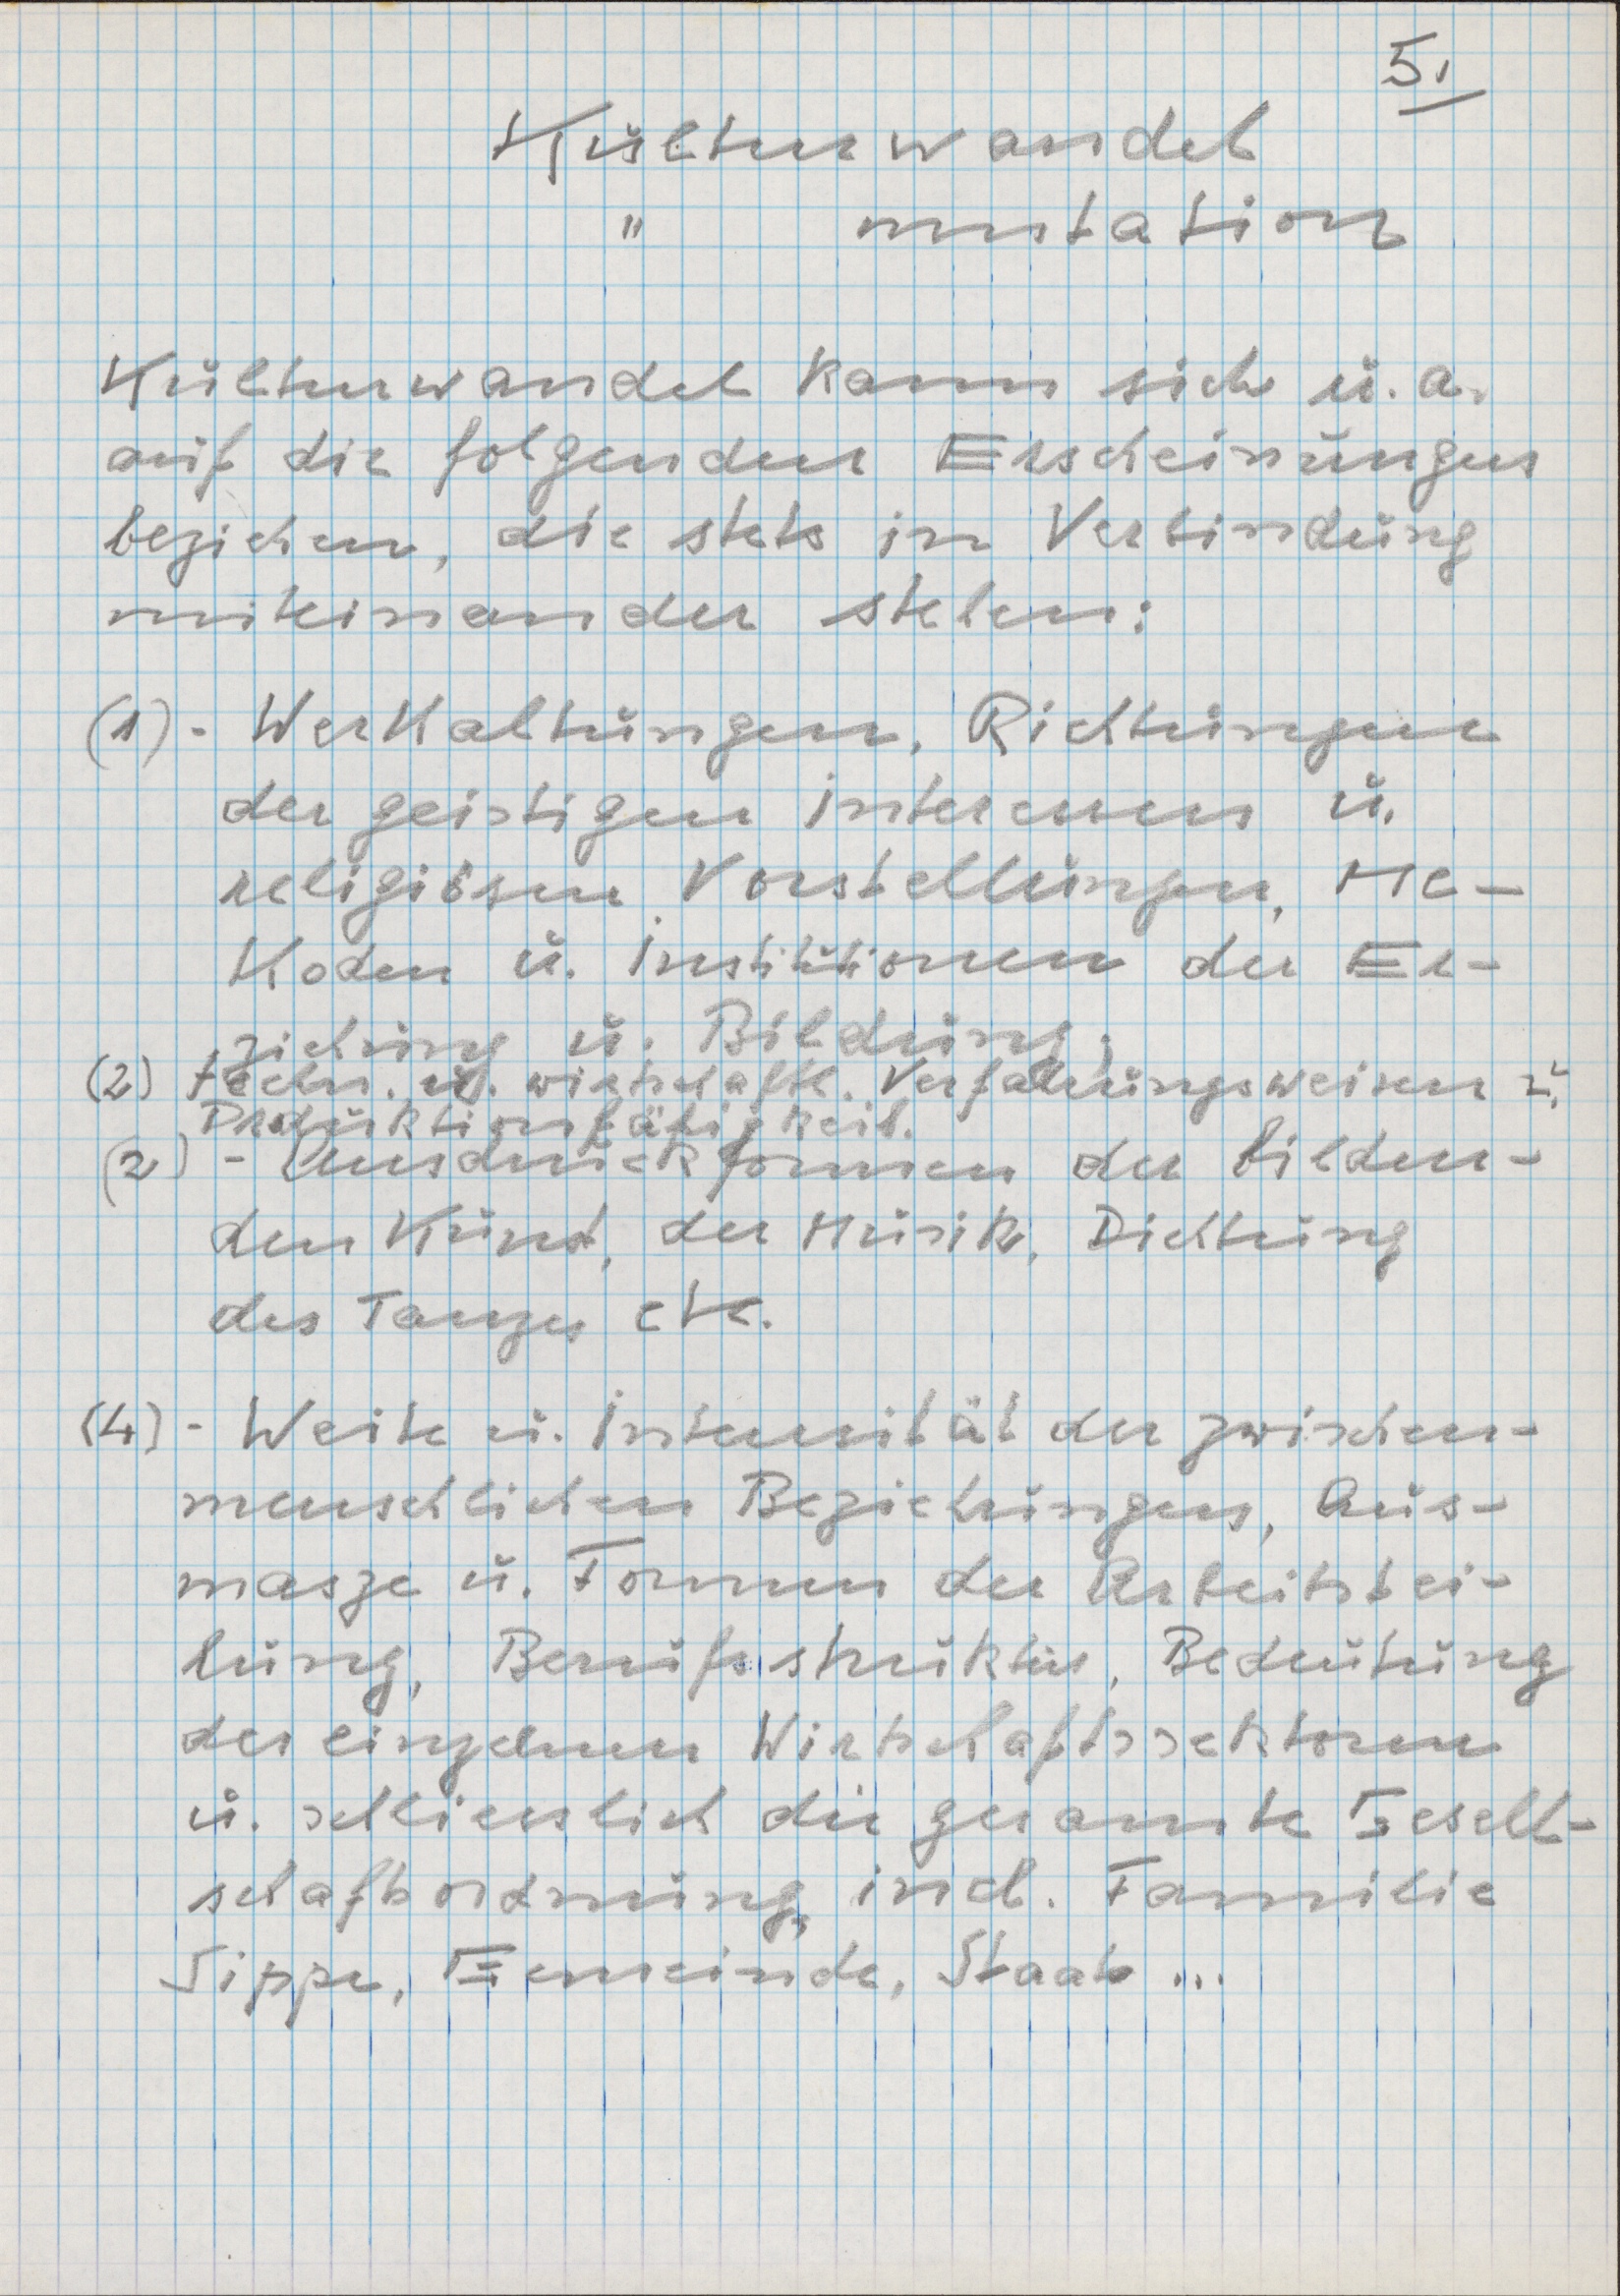 5.
Kulturwandel
" mutation
Kulturwandel kann sich u. a.
auf die folgenden Erscheinungen
beziehen, die stets in Verbindung
miteinander stehen:
(1) - Werthaltungen, Richtungen
der geistigen Interessen u.
religiösen Vorstellungen, Me-
thoden u. Institutionen der Er-
ziehung u. Bildung;
(2) techn. u. wirtschaftl. Verfahrungsweisen u.
Produktionsfähigkeit.
(2) - Ausdruckformen der bilden-
den Kunst, der Musik, Dichtung
des Tanzes etc.
(4) - Weite u. Intensität der zwischen-
menschlichen Beziehungen, Aus-
masze u. Formen der Arbeitstei-
lung, Berufsstruktur, Bedeutung
der einzelnen Wirtschaftssektoren
u. schliesslich die gesamte Gesell-
schaftsordnung, incl. Familie
Sippe, Gemeinde, Staat ...